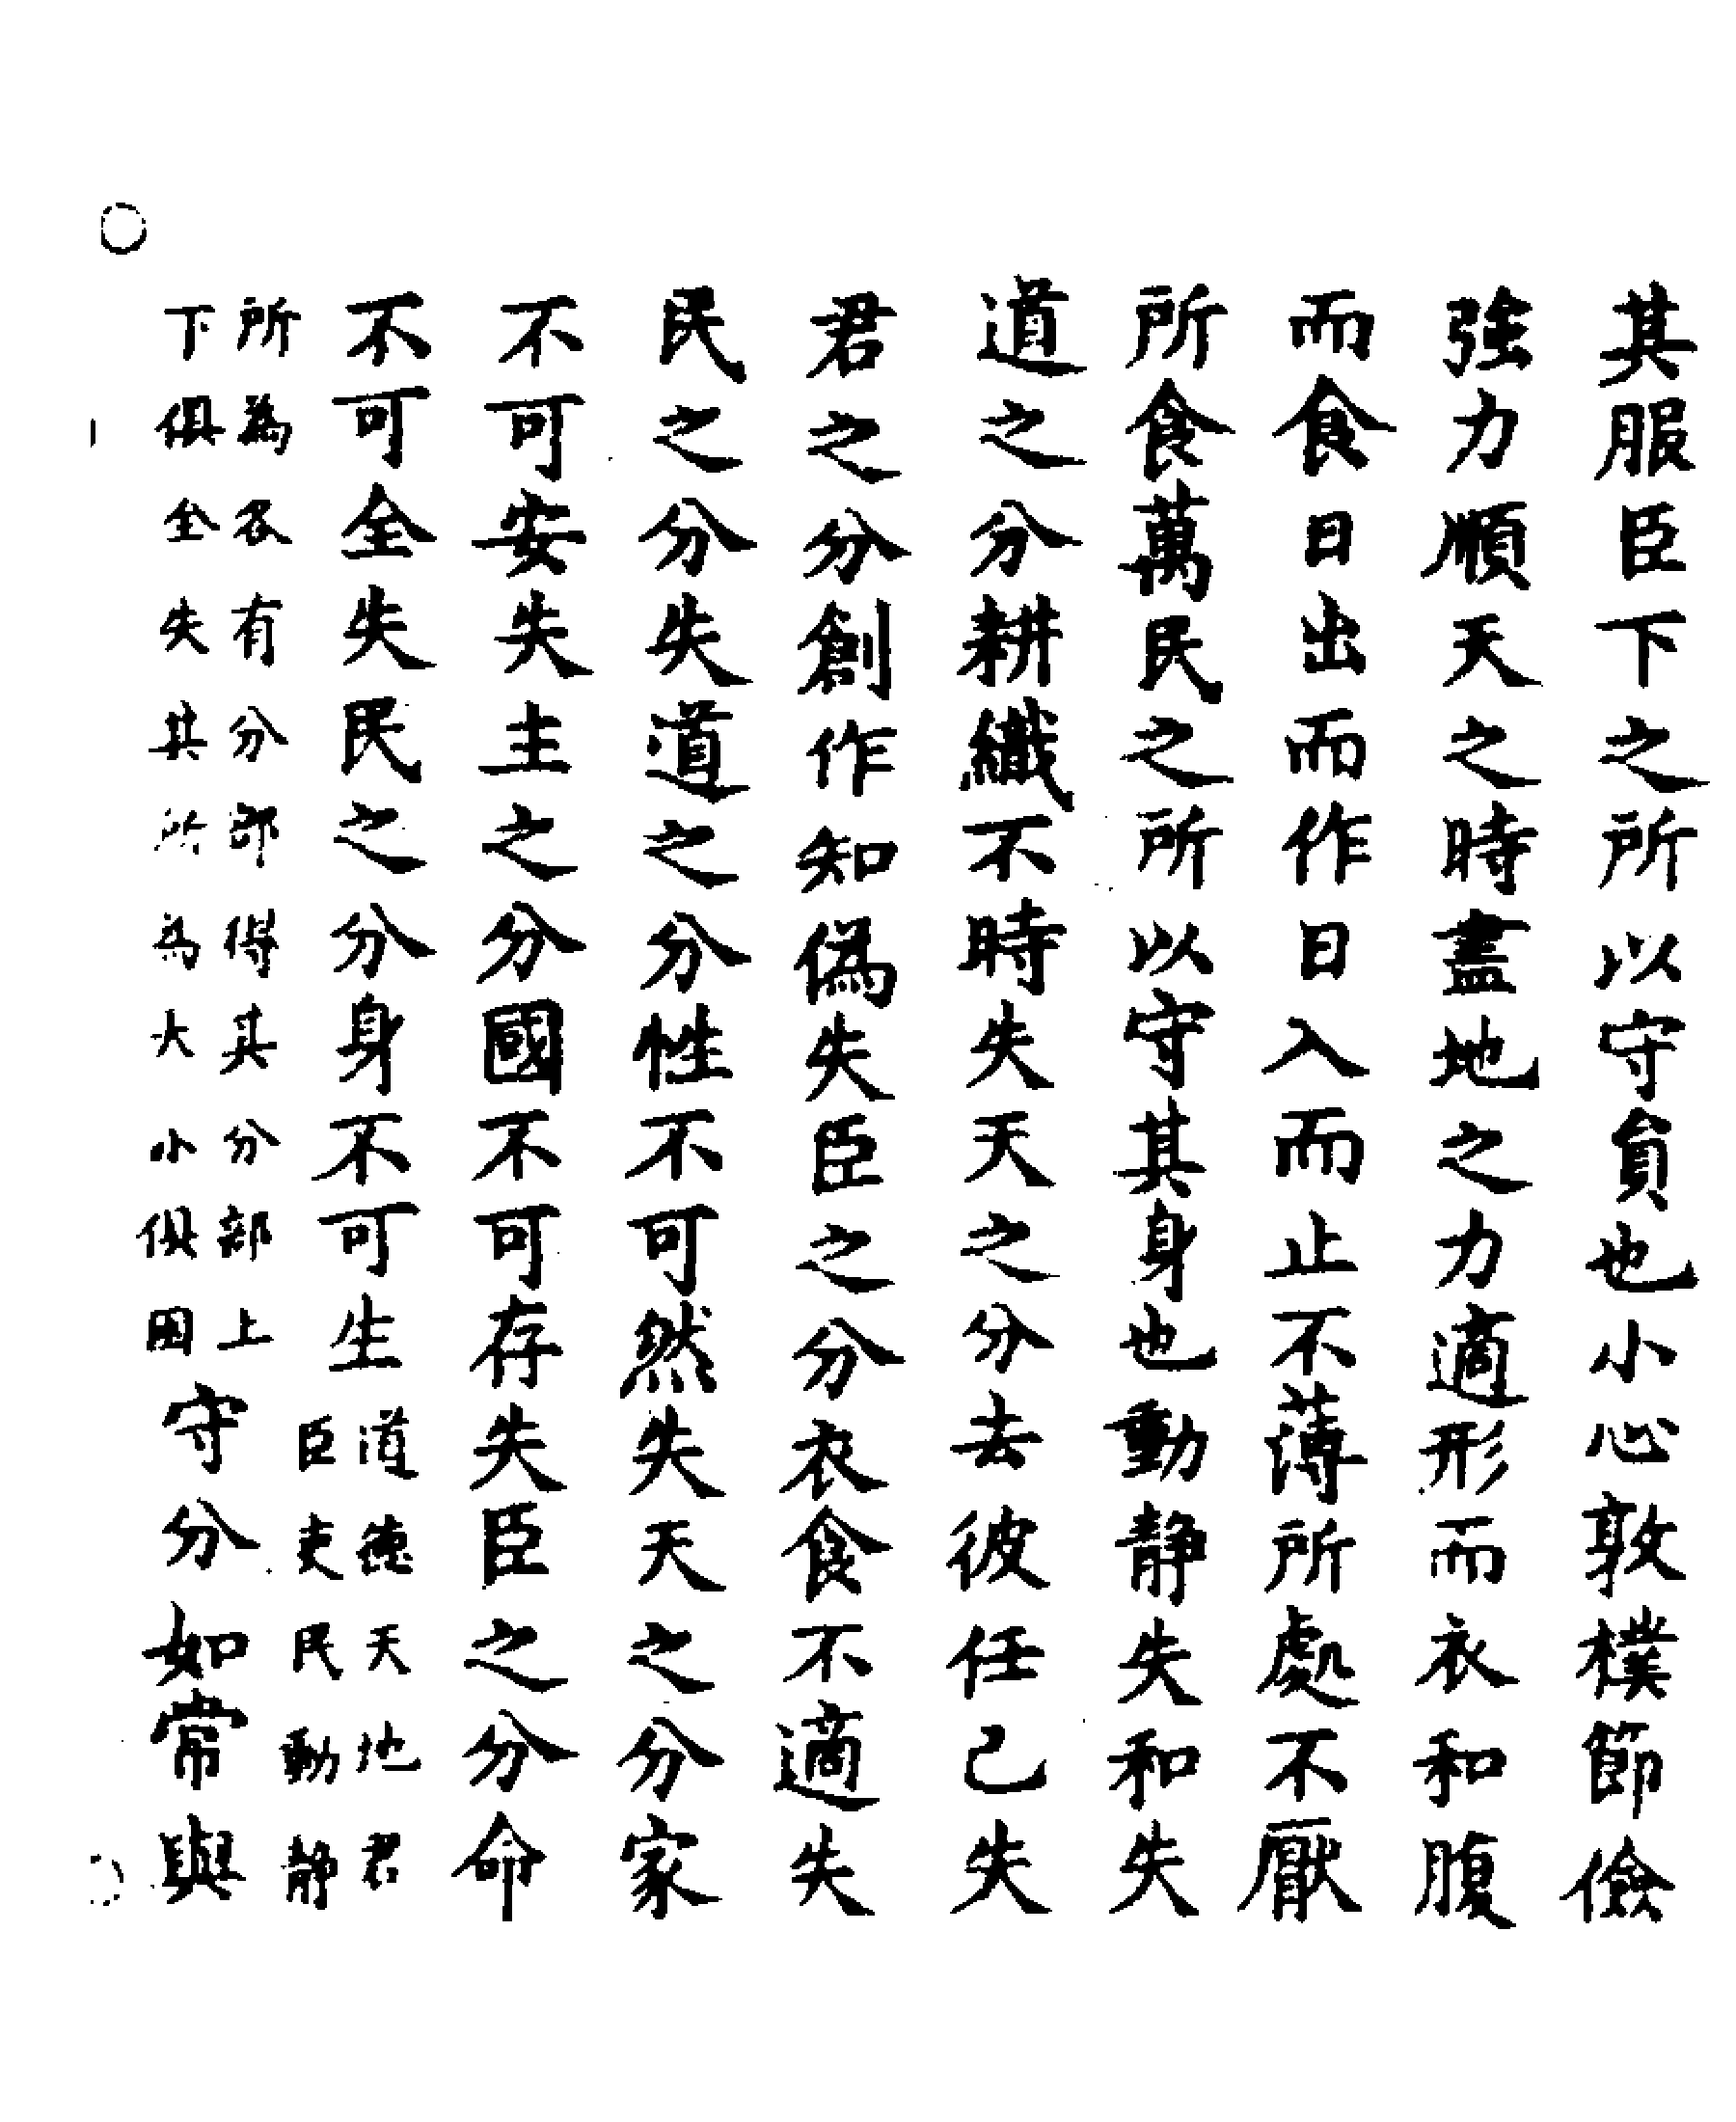 其服臣下之所以守員也小心敦樸節儉
強力順天之時盡地之力適形而衣和腹
而食日出而作日入而止不薄所處不厭
所食萬民之所以守其身也動静失和失
道之分耕織不時失天之分去彼任己失
君之分創作知偽失臣之分衣食不適失
民之分失道之分性不可然失天之分家
不可安失主之分國不可存失臣之分命
不可全失民之分身不可生道德天地君
臣吏民動静
所為各有分部得其分部上
下俱全失其所為大小俱困守分如常與